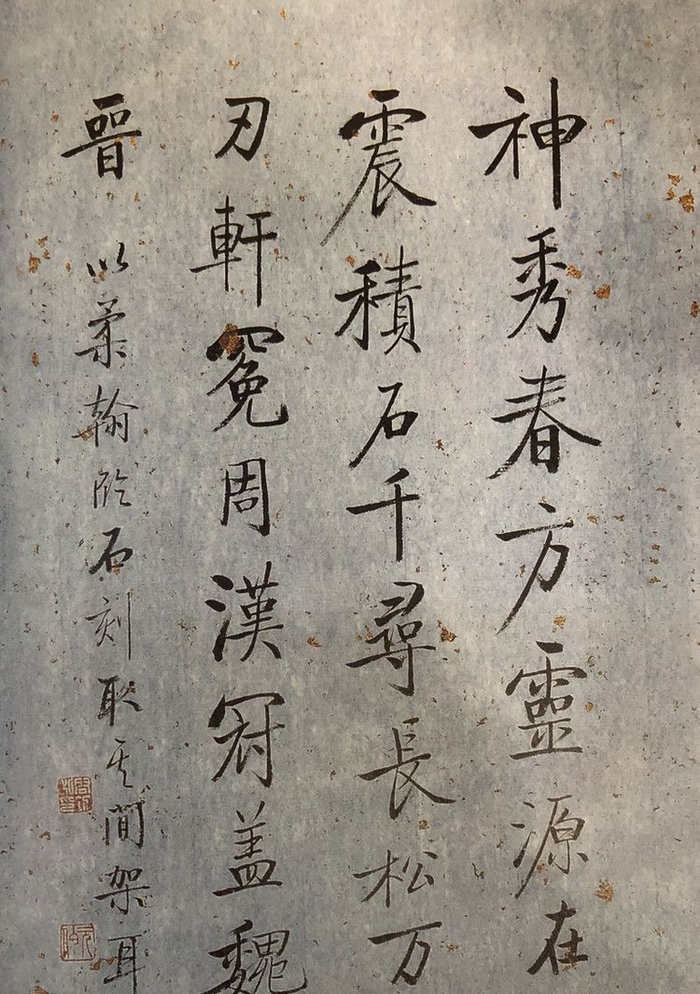 神秀春方靈源在
震積石千尋長松万
刃軒冕周漢冠盖魏
晉
以柔翰臨石刻取其間架耳